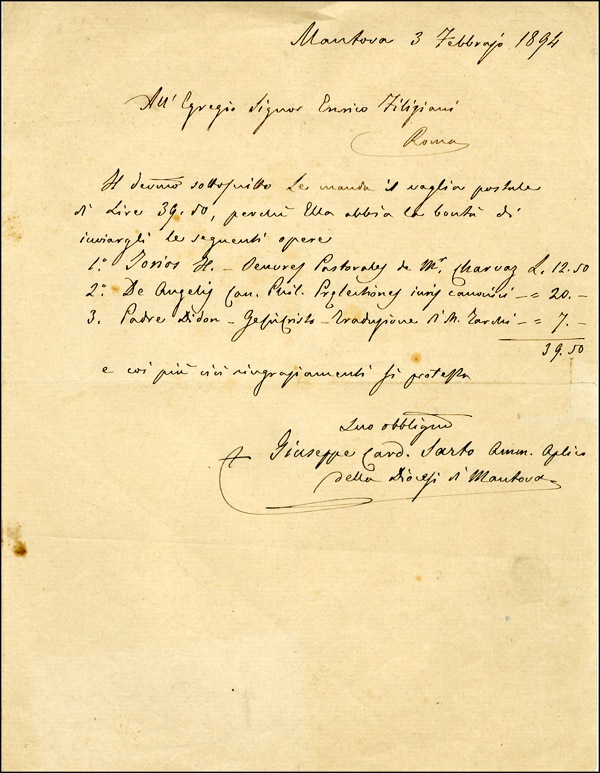 Mantova 3 Febbrajo 1894
All' Egregio Signor Enrico Filiziani
Roma
Il devmo sottoscritto Le manda il vaglia postale
di Lire 39.50, perchè Ella abbia la bontà di
inviargli le seguenti opere
1.° H. - Oeuvres Pastorales de Mr. Charvaz L. 12.50
2.° De Angelis Can. Phil. Prælectiones iuris canonici - = 20. -
3. Padre Didon - Gesù Cristo - Traduzione di M. - = 7. -
39.50
e coi più vivi ringraziamenti si protesta
Suo obbligmo
+ Giuseppe Card. Sarto Amm. Aplico
della Diocesi di Mantova